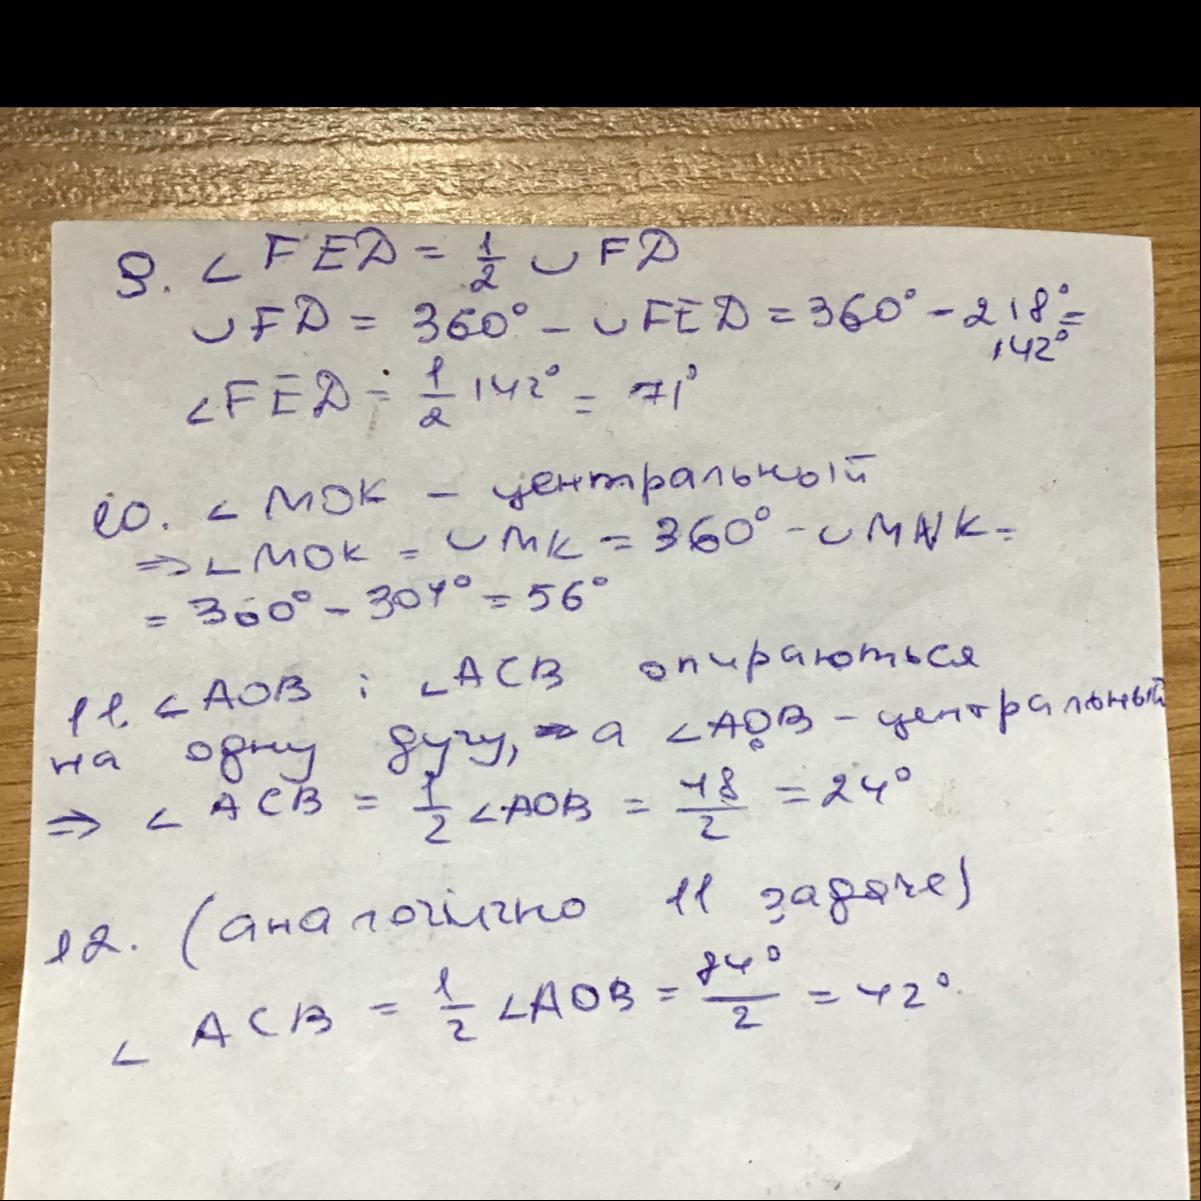 9. ∠FED = 1/2 ∪ FD
∪FD = 360° - ∪FED = 360° - 218° =
142°
∠FED = 1/2 142° = 71°
10. ∠MOK - центральный
=> ∠MOK = ∪MK = 360° - ∪MNK =
= 360° - 304° = 56°
11. ∠AOB i ∠ACB опираються
на одну дугу, а ∠AOB - центральный
=> ∠ACB = 1/2 ∠AOB = 48/2 = 24°
12. (аналогічно 11 задаче)
∠ACB = 1/2 ∠AOB = 84°/2 = 42°.